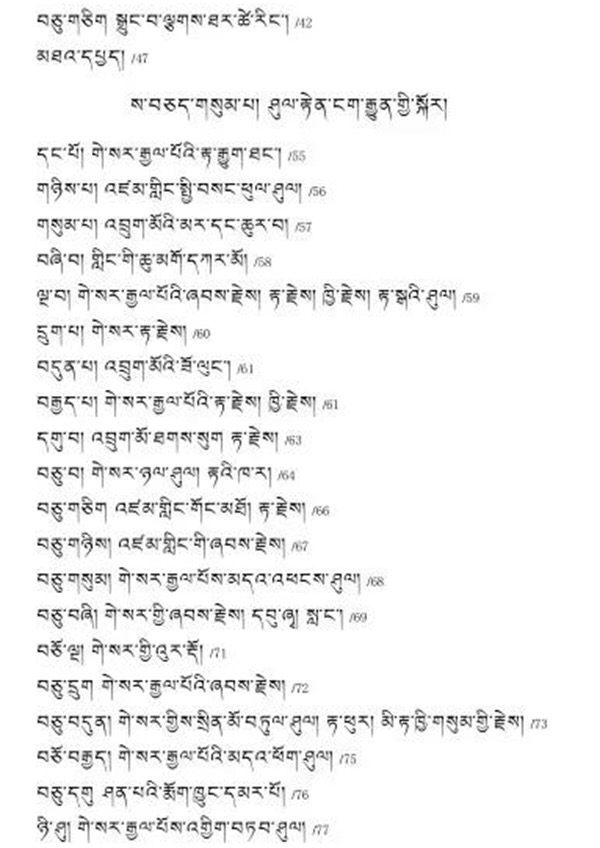 བཅུ་གཅིག སྒྲུང་བ་ལྕགས་ཐར་ཚེ་རིང་། /42
མཐའ་དཔྱད། /47
ས་བཅད་གསུམ་པ། ཤུལ་རྟེན་ངག་རྒྱུན་གྱི་སྐོར།
དང་པོ། གེ་སར་རྒྱལ་པོའི་རྟ་རྒྱུག་ཐང་། /55
གཉིས་པ། འཛམ་གླིང་སྤྱི་བསང་ཕུལ་ཤུལ། /56
གསུམ་པ། འབྲུག་མོའི་མར་དང་ཆུར་བ། /57
བཞི་བ། གླིང་གི་ཆུ་མགོ་དཀར་མོ། /58
ལྔ་བ། གེ་སར་རྒྱལ་པོའི་ཞབས་རྗེས། རྟ་རྗེས། ཁྱི་རྗེས། རྟ་སྒའི་ཤུལ། /59
དྲུག་པ། གེ་སར་རྟ་རྗེས། /60
བདུན་པ། འབྲུག་མོའི་ཟོ་ལུང་། /61
བརྒྱད་པ། གེ་སར་རྒྱལ་པོའི་རྟ་རྗེས། ཁྱི་རྗེས། /61
དགུ་བ། འབྲུག་མོ་ཐགས་སུག རྟ་རྗེས། /63
བཅུ་བ། གེ་སར་ཉལ་ཤུལ། རྟའི་ཁ་ར། /64
བཅུ་གཅིག འཛམ་གླིང་གོང་མཐོ། རྟ་རྗེས། /66
བཅུ་གཉིས། འཛམ་གླིང་གི་ཞབས་རྗེས། /67
བཅུ་གསུམ། གེ་སར་རྒྱལ་པོས་མདའ་འཕངས་ཤུལ། /68
བཅུ་བཞི། གེ་སར་གྱི་ཞབས་རྗེས། དབུ་ཞྭ། སླ་ང་། /69
བཅོ་ལྔ། གེ་སར་གྱི་འུར་རྡོ། /71
བཅུ་དྲུག གེ་སར་རྒྱལ་པོའི་ཞབས་རྗེས། /72
བཅུ་བདུན། གེ་སར་གྱིས་སྲིན་མོ་བཏུལ་ཤུལ། རྟ་ཕུར། མི་རྟ་ཁྱི་གསུམ་གྱི་རྗེས། /73
བཅོ་བརྒྱད། གེ་སར་རྒྱལ་པོའི་མདའ་ཕོག་ཤུལ། /75
བཅུ་དགུ ཤན་པའི་རྨོག་ཁྲུང་དམར་པོ། /76
ཉི་ཤུ། གེ་སར་རྒྱལ་པོས་འགྱིག་བཏབ་ཤུལ། /77